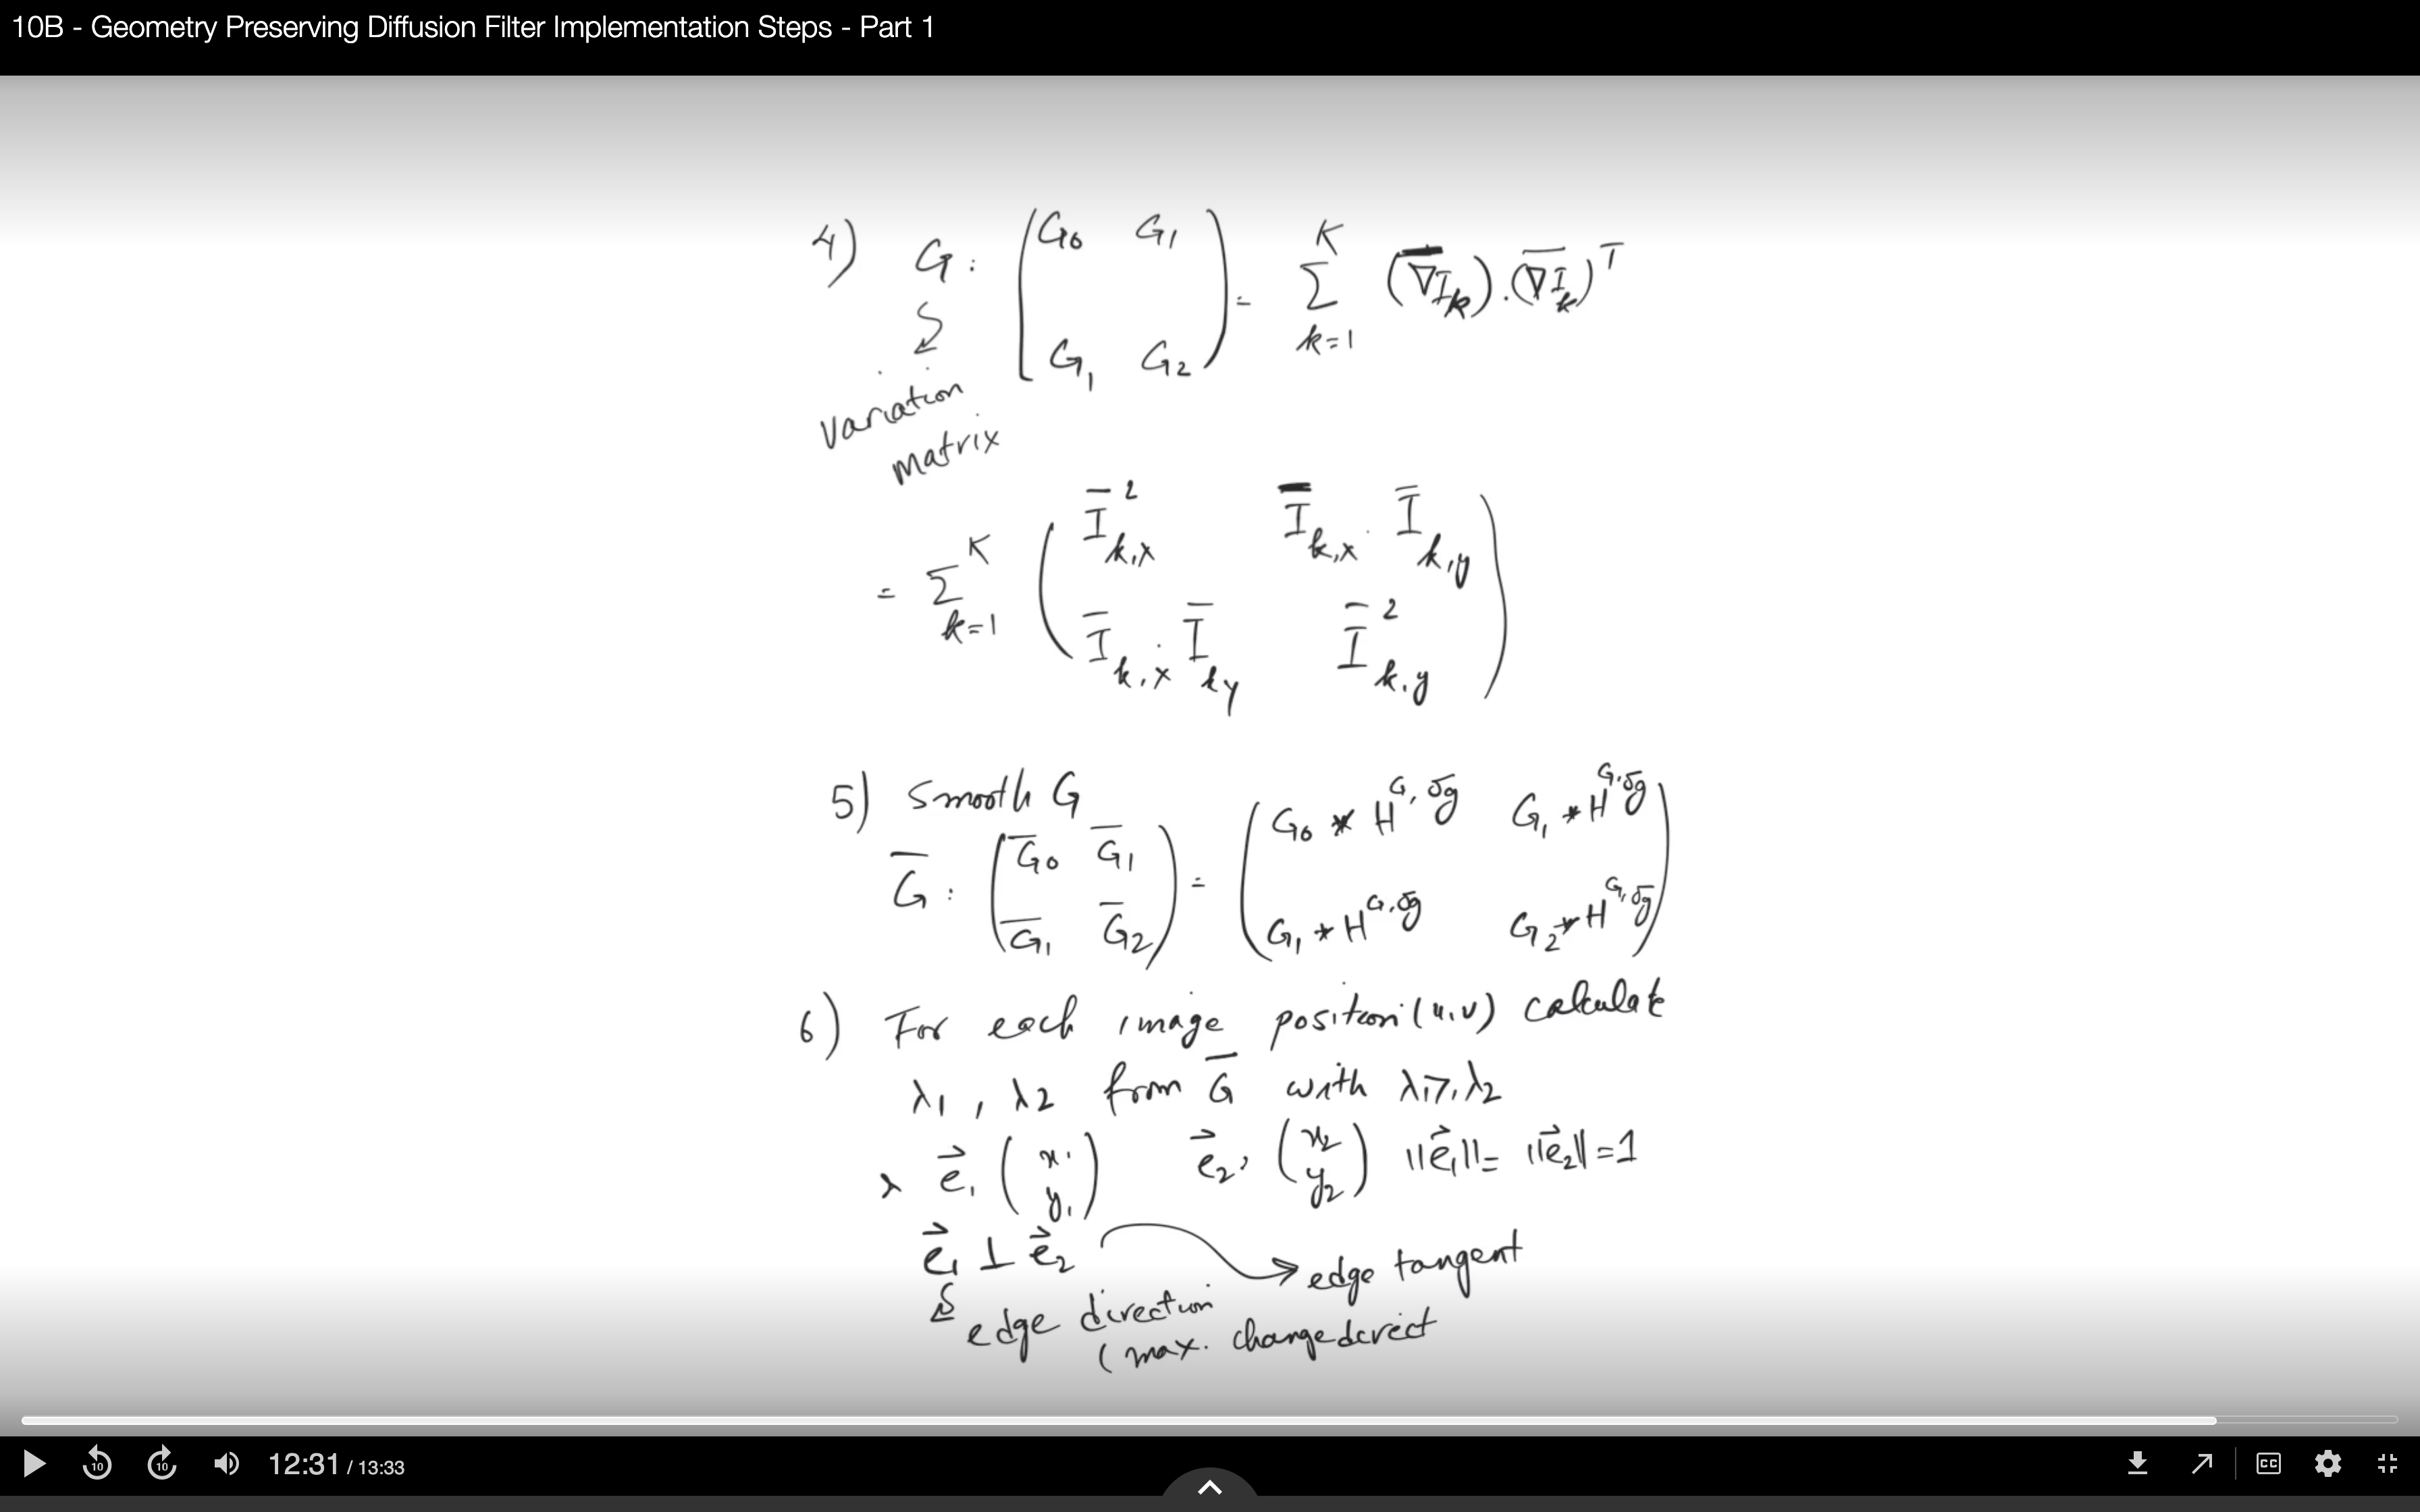 10B - Geometry Preserving Diffusion Filter Implementation Steps - Part 1
4) G : ( G₀ G₁ ; G₁ G₂ ) = Σ_{k=1}^{K} (∇̅I̅_k) . (∇̅I̅_k)ᵀ
variation
matrix
= Σ_{k=1}^{K} ( I̅²_{k,x} I̅_{k,x} · I̅_{k,y} ; I̅_{k,x} · I̅_{ky} I̅²_{k,y} )
5) Smooth G
G̅ : ( G̅₀ G̅₁ ; G̅₁ G̅₂ ) = ( G₀ * H^{G,σg} G₁ * H^{G,σg} ; G₁ * H^{G,σg} G₂ * H^{G,σg} )
6) For each image position (u,v) calculate
λ1 , λ2 from G̅ with λ1 ≥ λ2
λ e⃗₁ ( x₁ ; y₁ ) e⃗₂, ( x₂ ; y₂ ) ||e⃗₁|| = ||e⃗₂|| = 1
e⃗₁ ⊥ e⃗₂ → edge tangent
edge direction
(max. change direct
12:31 / 13:33
10
10
CC